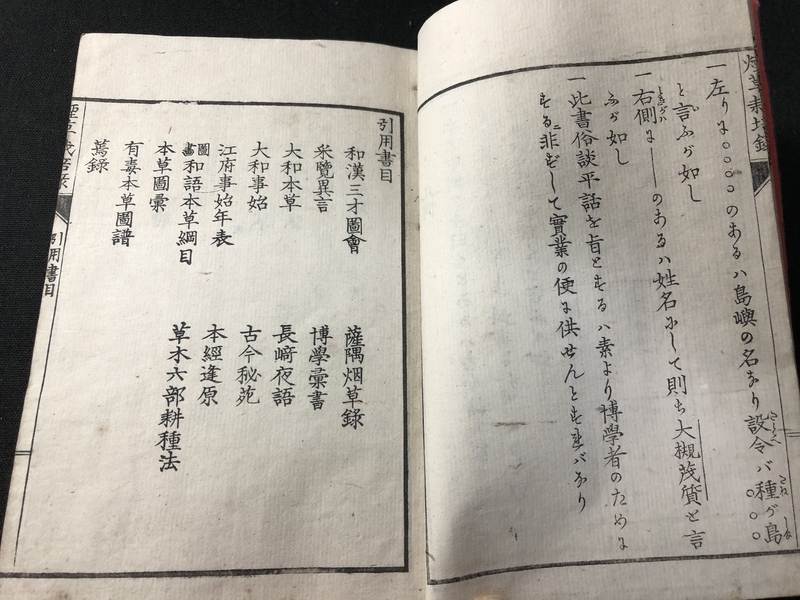 一左りに○○○○のあるハ島嶼の名なり設令バ種が島
と言ふが如し
一右側に――のあるハ姓名にして則ち大槻茂質と言
ふが如し
一此書俗談平話を旨とするハ素より博學者のために
するニ非ずして實業の便に供せんとすれバなり
引用書目
和漢三才圖會 薩隅烟草錄
采覽異言 博學彙書
大和本草 長崎夜語
大和事始 古今秘苑
江府事始年表 本經逢原
圖畫和語本草綱目 草木六部耕種法
本草圖彙
有毒本草圖譜
蔫錄
引用書目